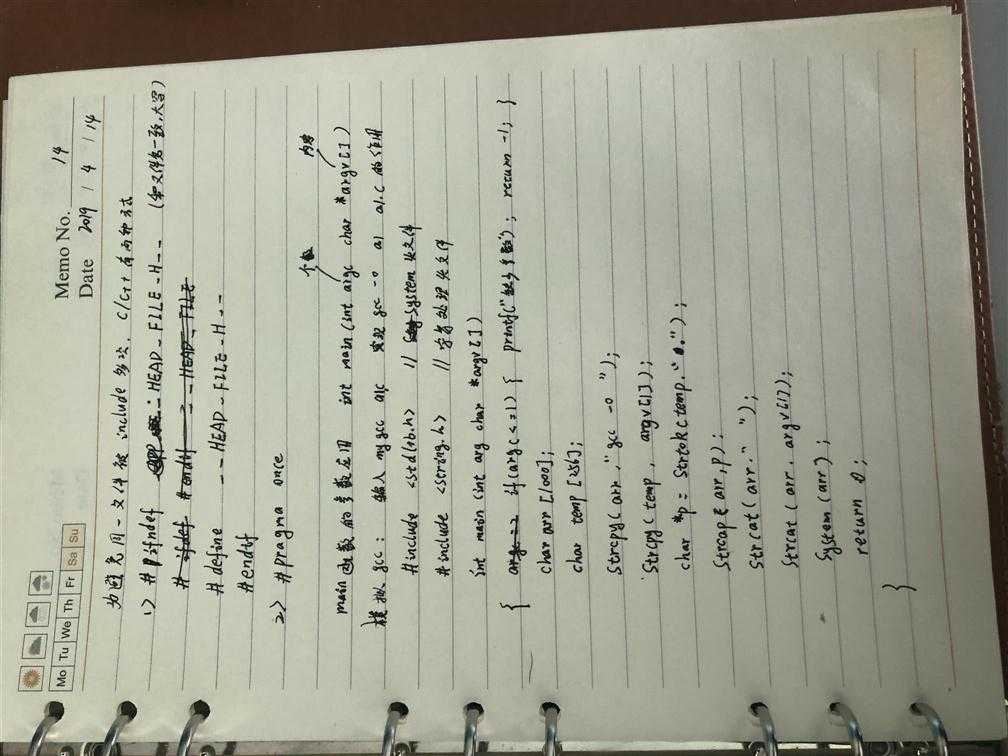 Memo No. 14
Mo Tu We Th Fr Sa Su
Date 2019 / 4 / 14
为避免同一文件被 include 多次, C/C++ 有两种方式
1> #ifndef __HEAD_FILE_H__ (和文件名一致,大写)
#define __HEAD_FILE_H__
#endif
2> #pragma once
个数 内容
main 函数的参数应用 int main(int argc char *argv[])
模拟 gcc: 输入 mygcc a1.c 实现 gcc -o a1 a1.c 的作用
#include <stdlib.h> // system 头文件
#include <string.h> // 字符处理头文件
int main (int arg char *argv[])
{ if(argc<=1) { printf("缺少参数"); return -1; }
char arr [1000];
char temp [256];
Strcpy(arr,"gcc -o ");
Strcpy(temp, argv[1]);
char *p = Strtok(temp,".");
Strcat(arr,p);
Strcat(arr," ");
Strcat(arr, argv[1]);
System (arr);
return 0;
}